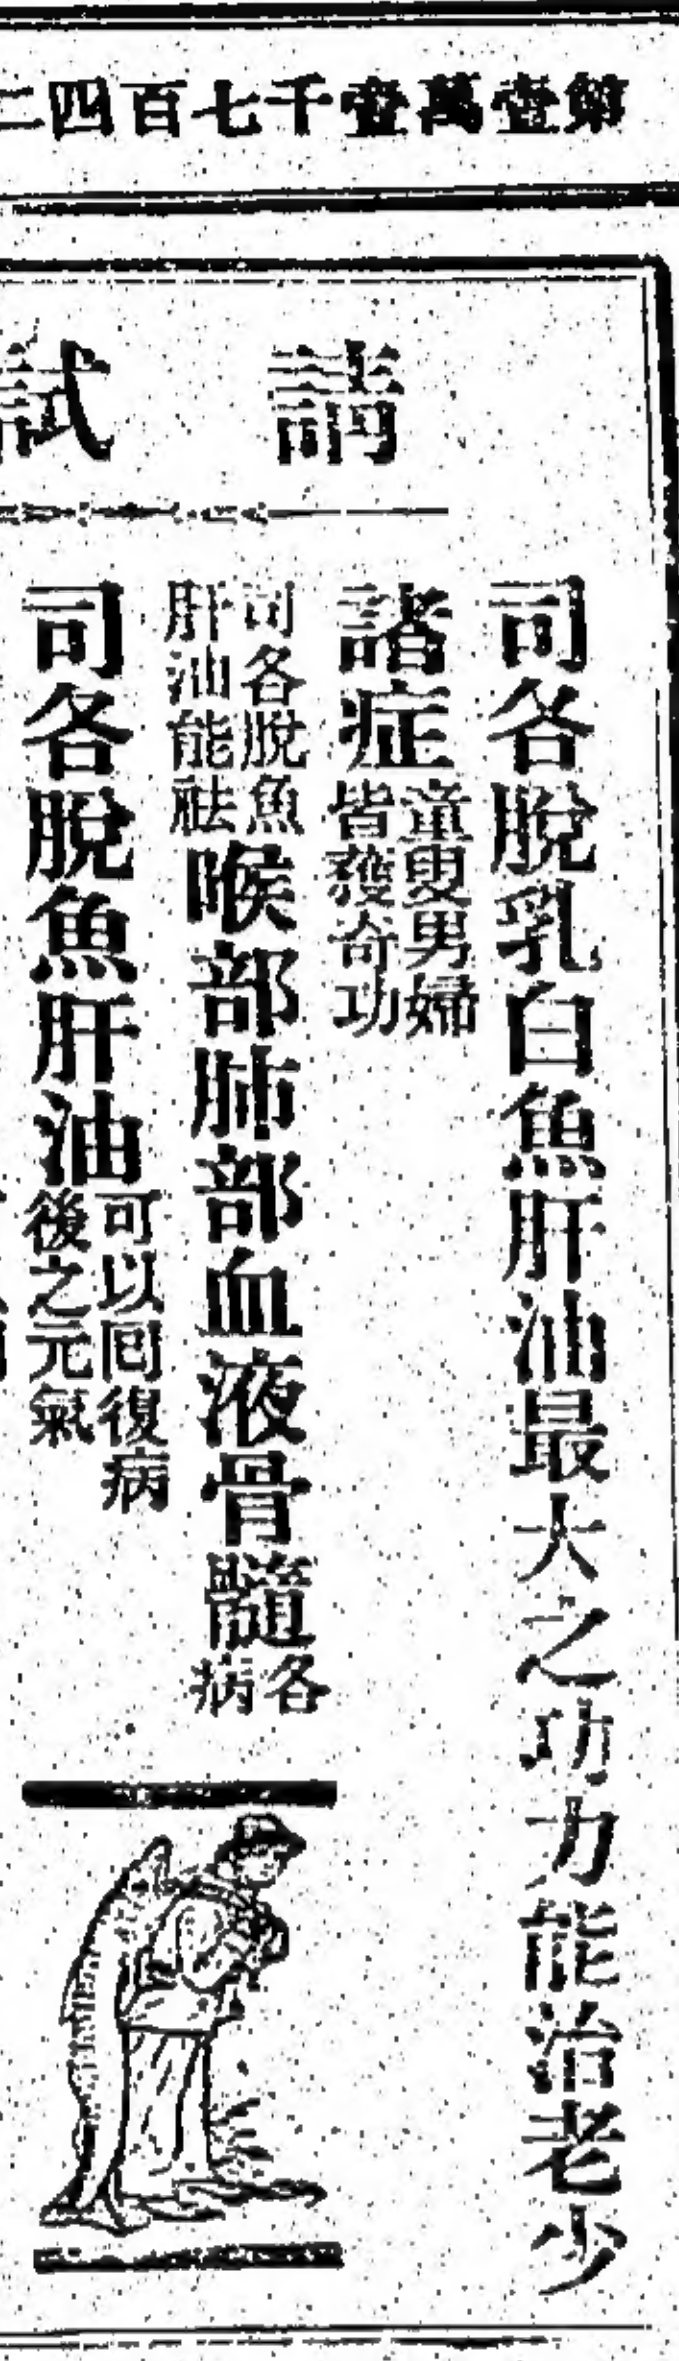 第壹萬壹千七百四二
請試
司各脫乳白魚肝油最大之功力能治老少
諸症
童叟男婦
皆獲奇功
司各脫魚
肝油能祛
喉部肺部血液骨髓
各病
司各脫魚肝油
可以回復病
後之元氣